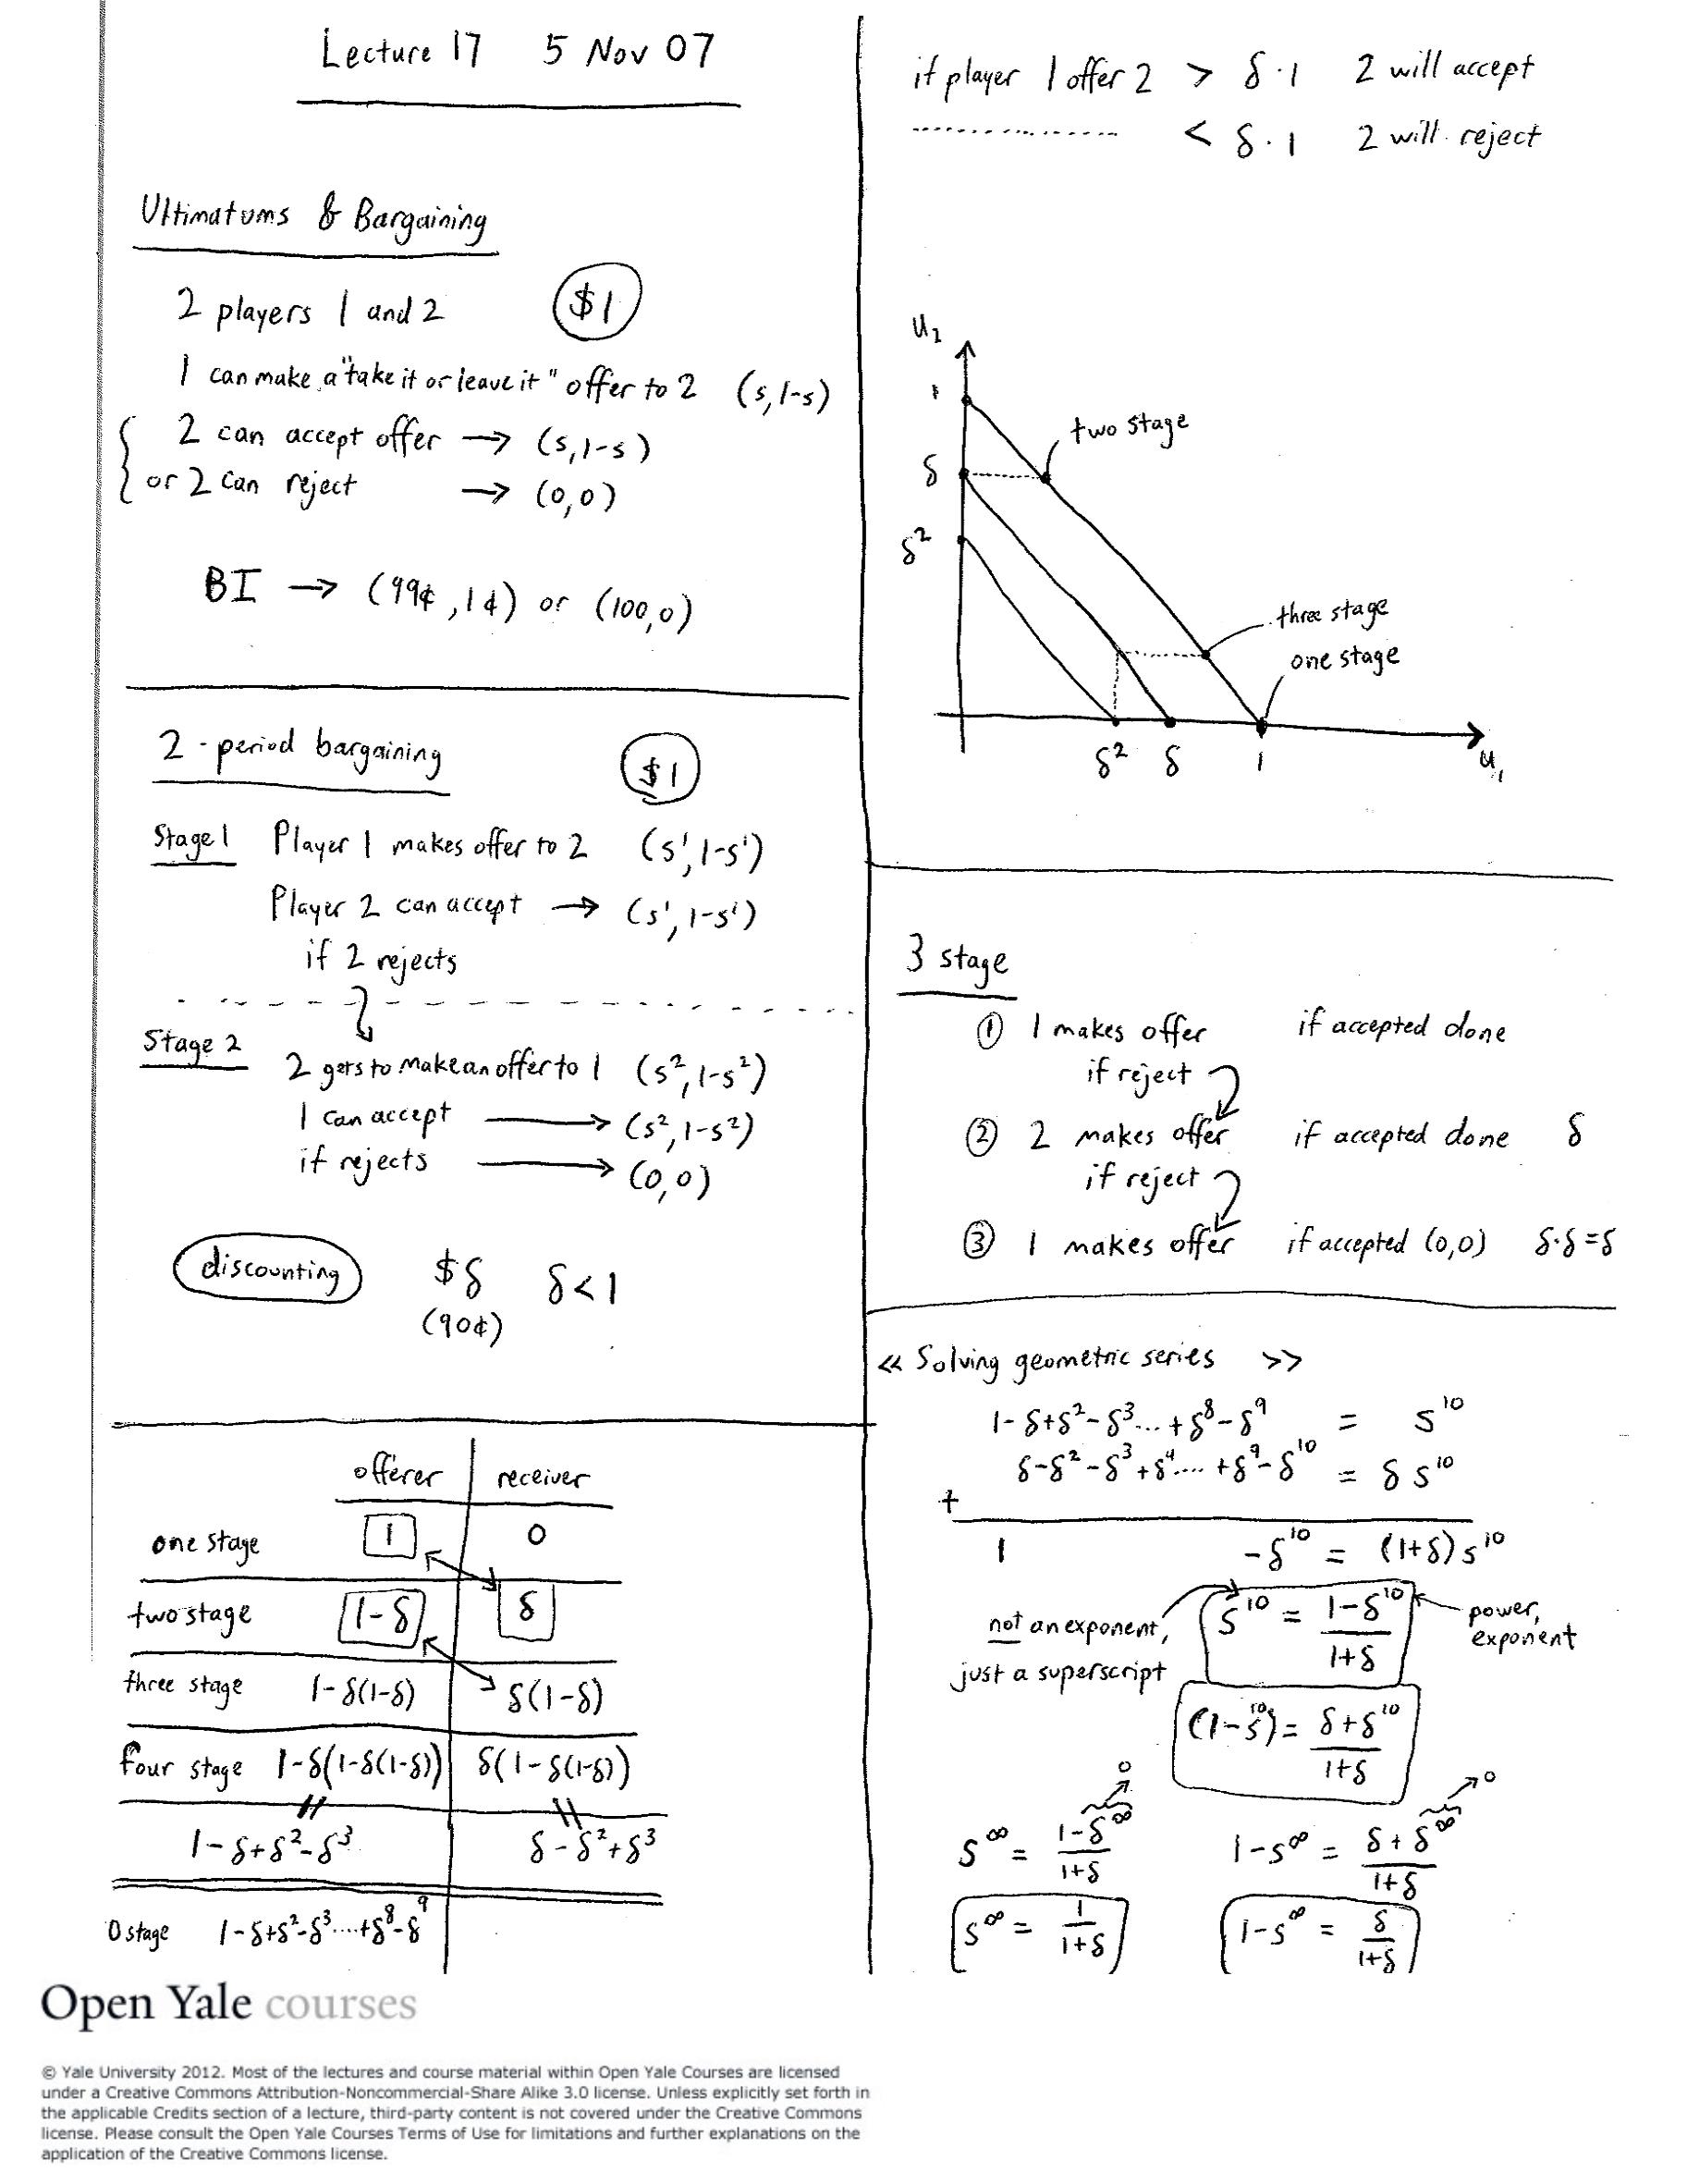 Lecture 17 5 Nov 07
Ultimatums & Bargaining
2 players 1 and 2 $1
1 can make a "take it or leave it" offer to 2 (s, 1-s)
2 can accept offer → (s, 1-s)
or 2 can reject → (0,0)
BI → (99¢, 1¢) or (100,0)
2-period bargaining $1
Stage 1 Player 1 makes offer to 2 (s¹, 1-s¹)
Player 2 can accept → (s¹, 1-s¹)
if 2 rejects
Stage 2
2 gets to make an offer to 1 (s², 1-s²)
1 can accept → (s², 1-s²)
if rejects → (0,0)
discounting $δ δ<1
(90¢)
offerer receiver
one stage 1 0
two stage 1-δ δ
three stage 1-δ(1-δ) δ(1-δ)
four stage 1-δ(1-δ(1-δ)) δ(1-δ(1-δ))
1-δ+δ²-δ³ δ-δ²+δ³
0 stage 1-δ+δ²-δ³....+δ⁸-δ⁹
if player 1 offer 2 > δ·1 2 will accept
............... < δ·1 2 will reject
u₂
1
two stage
δ
δ²
three stage
one stage
δ² δ 1 u₁
3 stage
① 1 makes offer if accepted done
if reject
② 2 makes offer if accepted done δ
if reject
③ 1 makes offer if accepted (0,0) δ·δ=δ
<< Solving geometric series >>
1-δ+δ²-δ³...+δ⁸-δ⁹ = s¹⁰
δ-δ²-δ³+δ⁴....+δ⁹-δ¹⁰ = δs¹⁰
+
1 -δ¹⁰ = (1+δ)s¹⁰
not an exponent, just a superscript
s¹⁰ = (1-δ¹⁰)/(1+δ)
power, exponent
(1-s¹⁰) = (δ+δ¹⁰)/(1+δ)
0 0
s^∞ = (1-δ^∞)/(1+δ) 1-s^∞ = (δ+δ^∞)/(1+δ)
s^∞ = 1/(1+δ) 1-s^∞ = δ/(1+δ)
Open Yale courses
© Yale University 2012. Most of the lectures and course material within Open Yale Courses are licensed
under a Creative Commons Attribution-Noncommercial-Share Alike 3.0 license. Unless explicitly set forth in
the applicable Credits section of a lecture, third-party content is not covered under the Creative Commons
license. Please consult the Open Yale Courses Terms of Use for limitations and further explanations on the
application of the Creative Commons license.